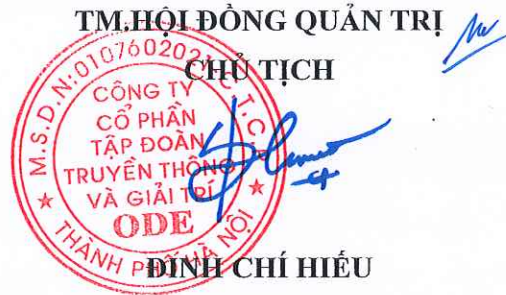 TM.HỘI ĐỒNG QUẢN TRỊ
CHỦ TỊCH
M.S.D.N:0107602021
C.T.C.P
CÔNG TY
CỔ PHẦN
TẬP ĐOÀN
TRUYỀN THÔNG
VÀ GIẢI TRÍ
ODE
THÀNH PHỐ HÀ NỘI
ĐINH CHÍ HIẾU